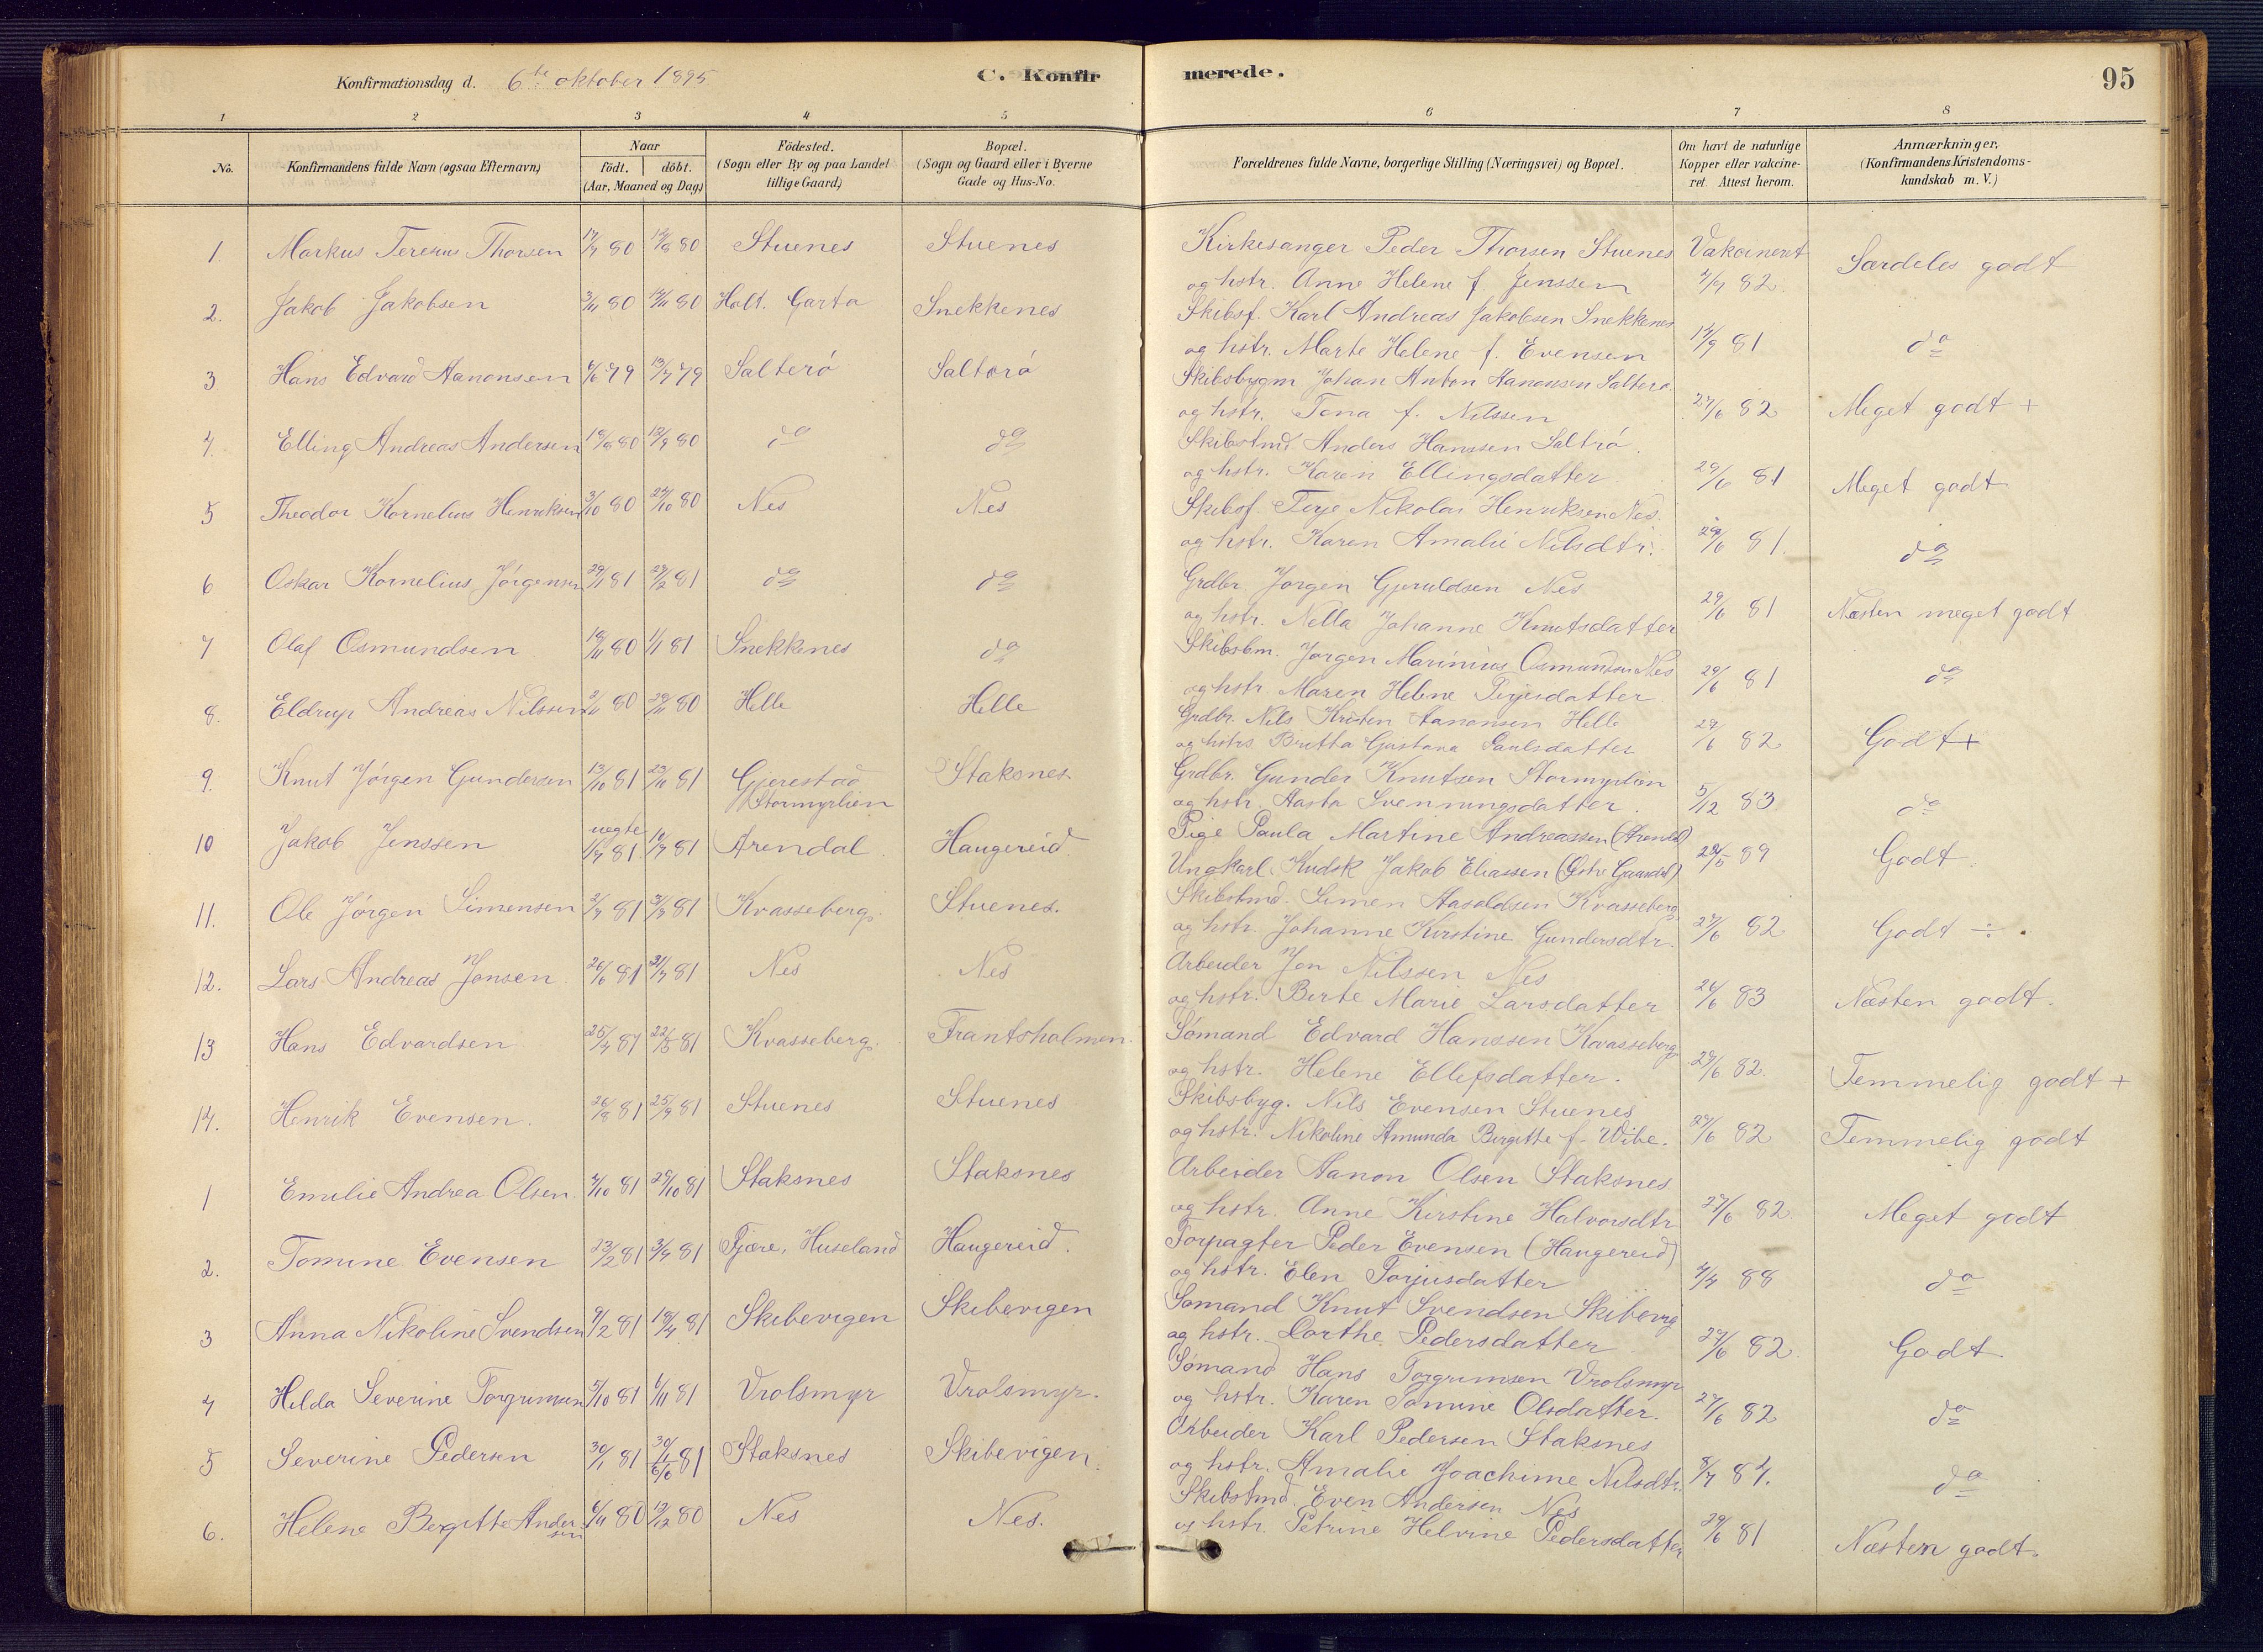 Konfirmationsdag d. 6te oktober 1895 C. Konfirmerede. 95
1 2 3 4 5 6 7 8
No. Konfirmandens fulde Navn (ogsaa Efternavn) Naar födt. döbt. (Aar, Maaned og Dag) Födested. (Sogn eller By og paa Landet tillige Gaard) Bopæl. (Sogn og Gaard eller i Byerne Gade og Hus-No. Forældrenes fulde Navne, borgerlige Stilling (Næringsvei) og Bopæl. Om havt de naturlige Kopper eller vakcineret. Attest herom. Anmærkninger, (Konfirmandens Kristendomskundskab m. V.)
1 Markus Teresius Thorsen 17/7 80 Stuenes Stuenes Kirkesanger Peder Thorsen Stuenes Vakcineret Særdeles godt
og hstr. Anne Helene f. Jenssen 4/9 82.
2. Jakob Jakobsen 3/11 80 14/11 80 Holt. Garta Snekkenes Skibsf. Karl Andreas Jakobsen Snekkenes
og hstr. Marte Helene f. Evensen 14/9 81 do
3 Hans Edvard Aanonsen 4/6 79 13/7 79 Salterö Salterö Skibsbygm Johan Anton Aanonsen Salterö
og hstr. Tona f. Nilssen 27/6 82 Meget godt +
4. Elling Andreas Andersen 18/8 80 12/9 80 do do Skibstmd. Anders Hanssen Saltrö.
og hstr. Karen Ellingsdatter 29/6 81 Meget godt
5 Theodor Kornelius Henriksen 3/10 80 24/10 80 Nes Nes Skibsf. Terje Nikolai Henriksen Nes.
og hstr. Karen Amalie Nilsdtr. 29/6 81. do
6 Oskar Kornelius Jörgensen 29/1 81 27/2 81 do do Grdbr. Jörgen Gjeruldsen Nes
og hstr. Nella Johanne Knutsdatter 29/6 81 Næsten meget godt
7 Olaf Osmundsen 18/11 80 1/1 81 Snekkenes do Skibsbm. Jörgen Marinius Osmundsen Nes
og hstr. Maren Helene Terjesdatter 29/6 81 do
8. Eldrup Andreas Nilssen 2/11 80 28/11 80 Helle Helle Grdbr. Nils Kristen Aanonsen Helle
og hstr. Britta Gustava Paulsdatter 27/6 82 Godt +
9. Knut Jörgen Gundersen 13/10 81 23/11 81 Gjerestad Stormyrlien Staksnes. Grdbr. Gunder Knutsen Stormyrlien
og hstr. Aasta Svenningsdatter. 5/12 83 do
10 Jakob Jenssen uegte 1/7 81 10/7 81 Arendal. Haugereid. Pige Paula Martine Andreassen (Arendal)
Ungkarl, Kudsk Jakob Eliassen 29/5 89 Godt.
11. Ole Jörgen Simensen 2/7 81 31/7 81 Kvasseberg. Stuenes. Skibstmd. Simen Aasoldsen Kvasseberg.
og hstr. Johanne Kirstine Gundersdtr. 27/6 82 Godt ÷.
12. Lars Andreas Jonsen. 26/6 81 31/7 81 Nes Nes Arbeider Jon Nilssen Nes
og hstr. Berte Marie Larsdatter 26/6 83 Næsten godt.
13 Hans Edvardsen 25/4 81 22/5 81 Kvasseberg. Frantsholmen. Sömand Edvard Hanssen Kvasseberg
og hstr. Helene Ellefsdatter. 27/6 82. Temmelig godt +
14. Henrik Evensen. 26/8 81 25/9 81 Stuenes Stuenes Skibsbyg. Nils Evensen Stuenes
og hstr. Nikoline Amunda Birgitte f. Wibe. 27/6 82 Temmelig godt
1 Emilie Andrea Olsen. 4/10 81 25/10 81 Staksnes Staksnes Arbeider Aanon Olsen Staksnes
og hstr. Anne Kirstine Halvorsdtr 27/6 82. Meget godt
2. Tomine Evensen 23/2 81 3/4 81 Fjære, Huseland Haugereid. Forpagter Peder Evensen (Haugereid)
og hstr. Elen Torjusdatter 4/4 88 do
3 Anna Nikoline Svendsen 9/2 81 18/4 81 Skibevigen Skibevigen Sömand Knut Svendsen Skibevig
og hstr. Dorthe Pedersdatter 27/6 82. Godt.
4 Helda Severine Torgrimsen 5/10 81 1/11 81 Vrolsmyr Vrolsmyr. Sömand Hans Torgrimsen Vrolsmyr
og hstr. Karen Tomine Olsdatter. 27/6 82 do
5 Severine Pedersen 30/1 81 30/1 6/6 81 Staksnes Skibevigen. Arbeider Karl Pedersen Staksnes
og hstr. Amalie Joachime Nilsdtr. 8/7 84. do
6. Helene Bergitte Andersen 6/11 80 12/12 80 Nes Nes. Skibstmd. Even Andersen Nes
og hstr. Petrine Helvine Pedersdatter 29/6 81 Næsten godt.